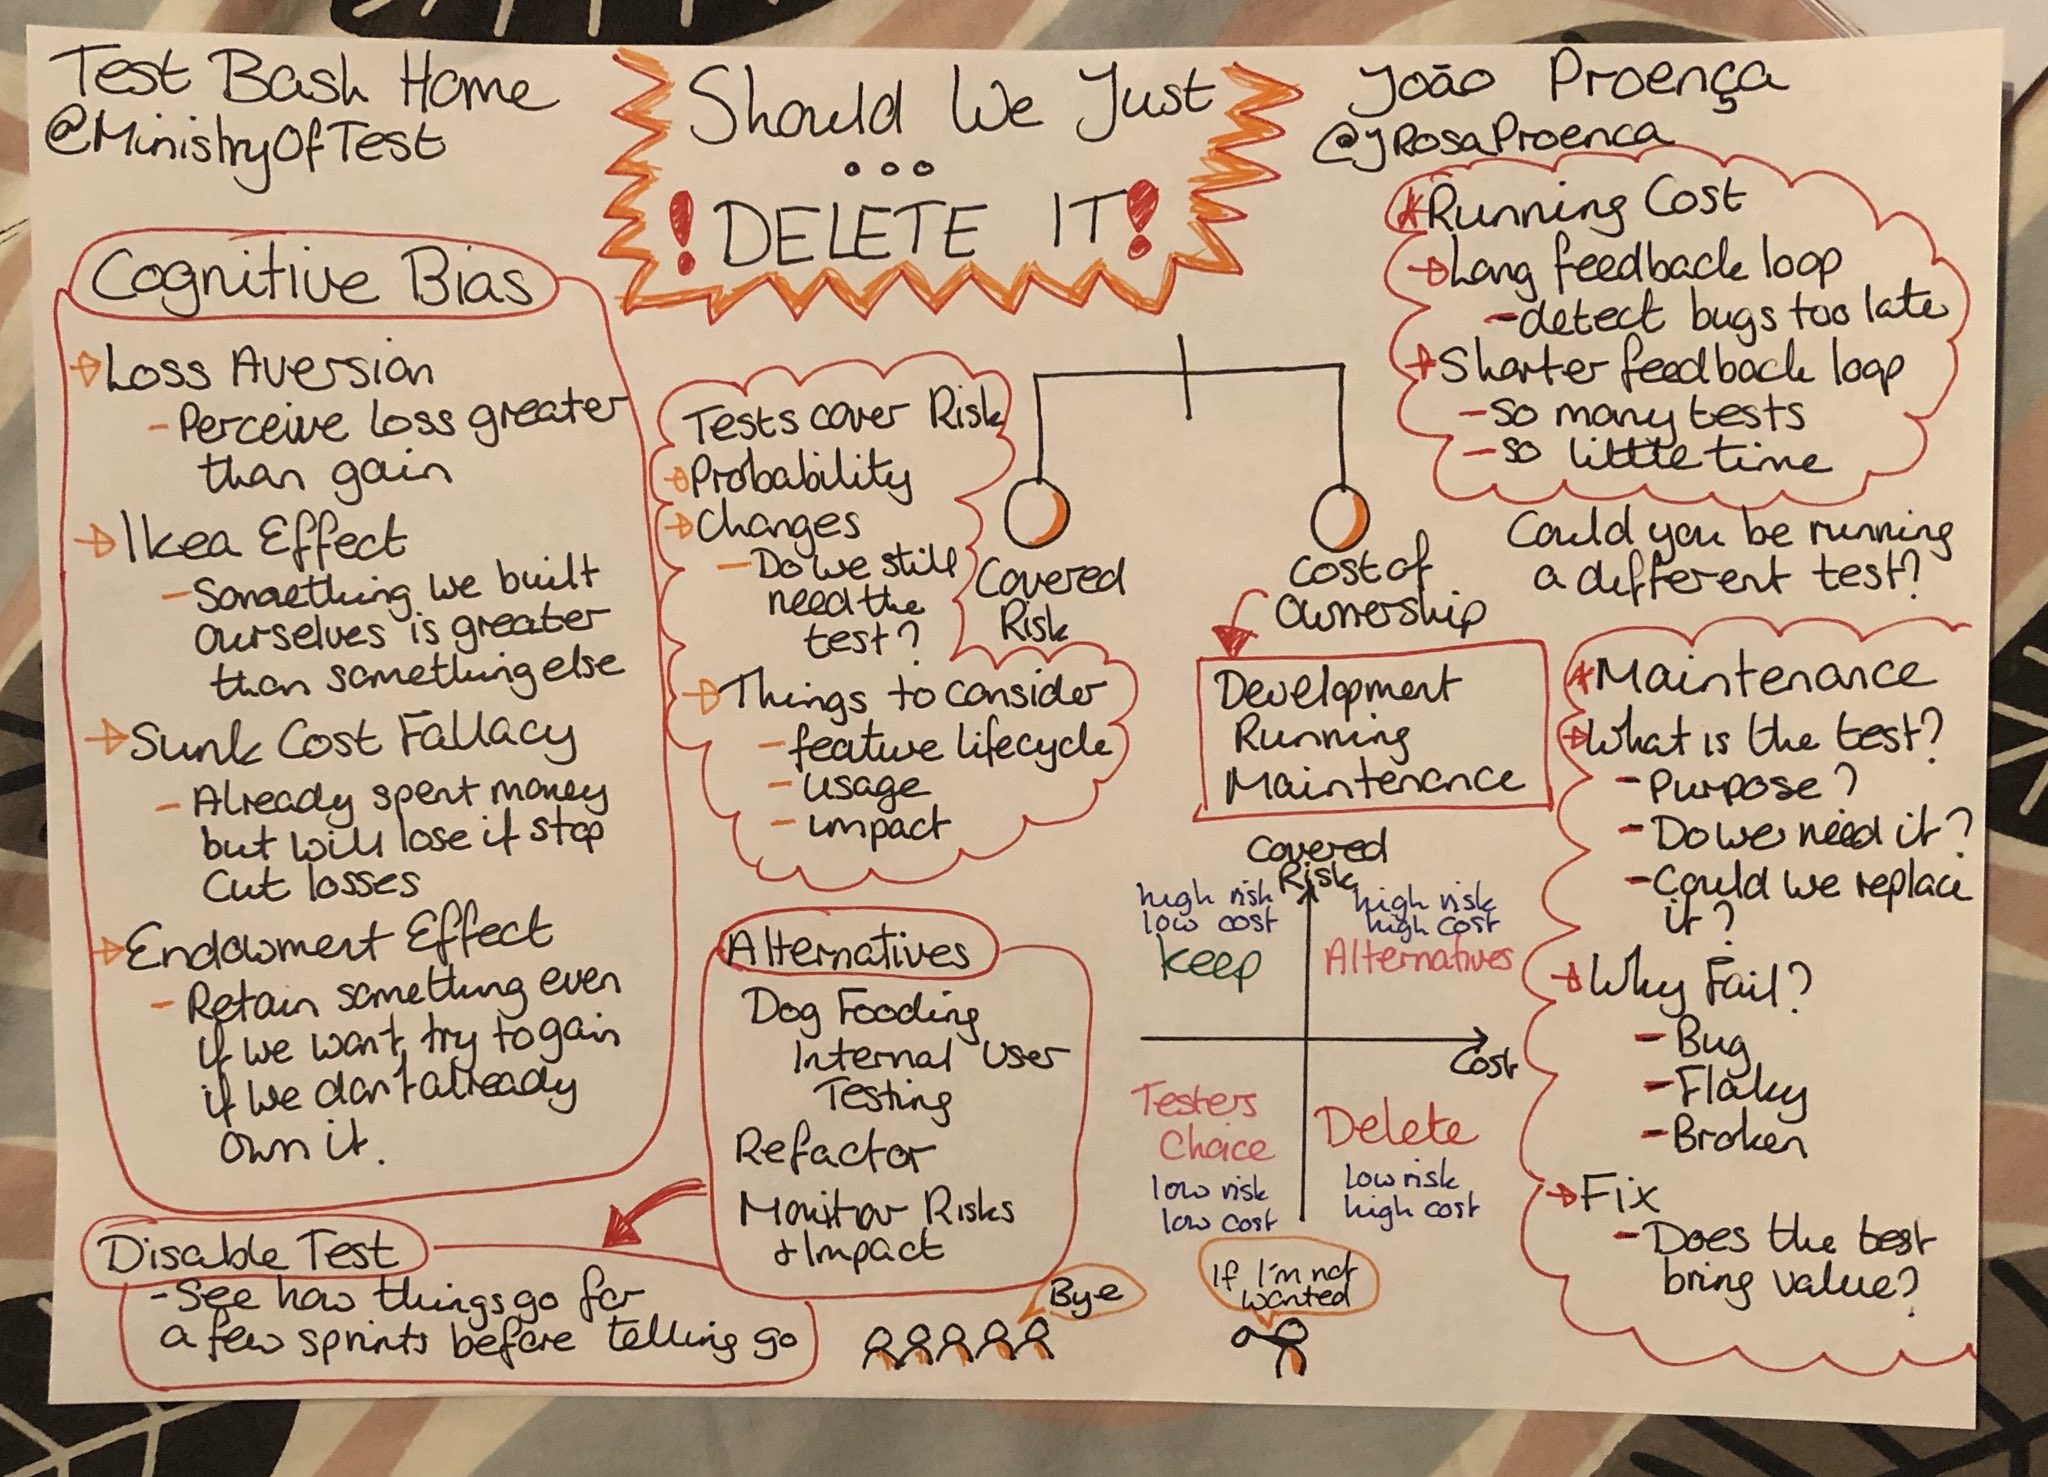 Test Bash Home
@MinistryOfTest
Should We Just
...
!DELETE IT!
João Proença
@JRosaProenca
Cognitive Bias
Loss Aversion
- Perceive loss greater
than gain
Ikea Effect
- Something we built
ourselves is greater
than something else
Sunk Cost Fallacy
- Already spent money
but will lose if stop
Cut losses
Endowment Effect
- Retain something even
if we want, try to gain
if we don't already
own it.
Tests cover Risk
Probability
Changes
- Do we still
need the
test?
Things to consider
- feature lifecycle
- usage
- impact
Covered
Risk
Cost of
Ownership
Development
Running
Maintenance
Running Cost
Long feedback loop
- detect bugs too late
Shorter feedback loop
- so many tests
- so little time
Could you be running
a different test?
Maintenance
What is the test?
- Purpose?
- Do we need it?
- Could we replace
it?
Why Fail?
- Bug
- Flaky
- Broken
Fix
- Does the test
bring value?
Covered
Risk
high risk
low cost
Keep
high risk
high cost
Alternatives
Cost
Testers
Choice
low risk
low cost
Delete
low risk
high cost
Alternatives
Dog Fooding
Internal User
Testing
Refactor
Monitor Risks
& Impact
Disable Test
- See how things go for
a few sprints before telling go
Bye
If I'm not
wanted